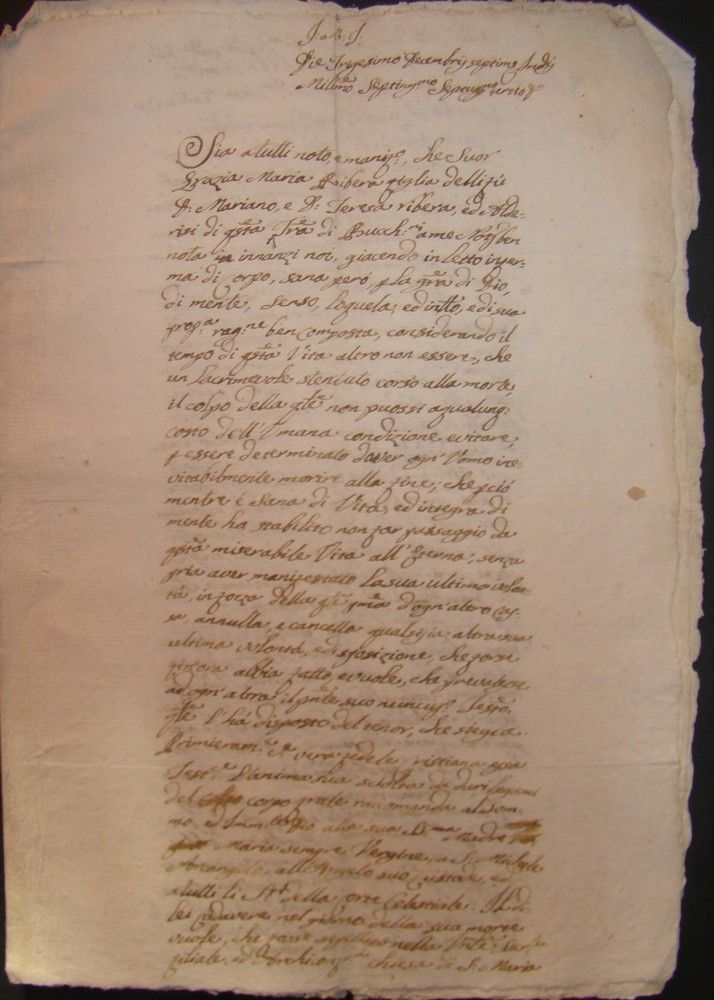 J. M. J.
Die Trigesimo Decembris septime Indis
Millmo Septingmo Septuagmo tertio
Sia a tutti noto, e manifo, che Suor
Grazia Maria Ribera figlia delli
D. Mariano, e Da. Teresa ribera, ed Alde-
risi di qsta Trã di Bucchri a me Notr ben
nota in innanzi noi, giacendo in letto infer-
ma di Corpo, sana però p la gra di Dio,
di mente, senso, loquela, ed intto, e di sua
propa ragne ben composta, considerando il
tempo di qsta Vita altro non essere, che
un Lacrimevole stentato corso alla morte,
il colpo della qle non puossi a qualung:
costo dell'Umana condizione evitare,
p essere determinato dover ogn'Uomo ine-
vitabilmente morire alla fine, che pciò
mentre è sana di Vita, ed integra di
mente ha stabilito non far passaggio da
qsta miserabile Vita all'Eterna, senza
pria aver manifestato la sua ultima volon-
tà, in forza della qle pria d'ogn'altro cas-
sa, annulla, e cancella qualsisia altra sua
ultima volontà, e disposizione, che forse
finora abbia fatto, e vuole, che prevalesse
ad ogn'altro il pnte suo nuncupo Testo
qle l'hà disposto del tenor, che siegue
Primieramte Da vera fedele ristiana essa
Testce l'anima sua sciolta da duri legami
del corpo pnte raccomanda al Som-
mo, ed Immto Dio alla sua SSma Madre
Maria sempre Vergine, a S. Michele
Arcangelo, all'Angelo suo Custode, ed
a tutti li Sti della Corte Celestiale. Il di
lei cadavere nel giorno della sua morte
vuole, che fosse sepellito nella
Chiesa di S. Maria